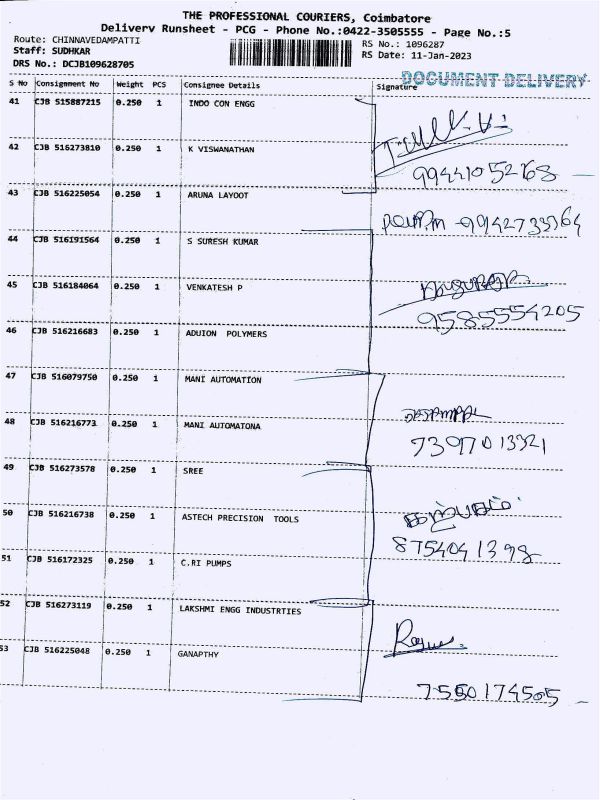 THE PROFESSIONAL COURIERS, Coimbatore
Delivery Runsheet - PCG - Phone No.:0422-3505555 - Page No.:5
Route: CHINNAVEDAMPATTI
Staff: SUDHKAR
DRS No.: DCJB109628705
RS No.: 1096287
RS Date: 11-Jan-2023
DOCUMENT DELIVERY
S No Consignment No Weight PCS Consignee Details Signature
41 CJB 515887215 0.250 1 INDO CON ENGG
42 CJB 516273810 0.250 1 K VISWANATHAN
99441052768
43 CJB 516225054 0.250 1 ARUNA LAYOOT
44 CJB 516191564 0.250 1 S SURESH KUMAR
45 CJB 516184064 0.250 1 VENKATESH P
9585554205
46 CJB 516216683 0.250 1 ADUION POLYMERS
47 CJB 516079750 0.250 1 MANI AUTOMATION
48 CJB 516216773 0.250 1 MANI AUTOMATONA
7397013321
49 CJB 516273578 0.250 1 SREE
50 CJB 516216738 0.250 1 ASTECH PRECISION TOOLS
8754041398
51 CJB 516172325 0.250 1 C.RI PUMPS
52 CJB 516273119 0.250 1 LAKSHMI ENGG INDUSTRTIES
53 CJB 516225048 0.250 1 GANAPTHY
7550174505